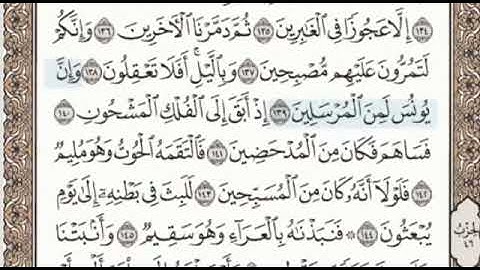 ١٣٤ إِلَّا عَجُوزًا فِي الْغَابِرِينَ ١٣٥ ثُمَّ دَمَّرْنَا الْآخَرِينَ ١٣٦ وَإِنَّكُمْ
لَتَمُرُّونَ عَلَيْهِم مُّصْبِحِينَ ١٣٧ وَبِاللَّيْلِ ۗ أَفَلَا تَعْقِلُونَ ١٣٨ وَإِنَّ
يُونُسَ لَمِنَ الْمُرْسَلِينَ ١٣٩ إِذْ أَبَقَ إِلَى الْفُلْكِ الْمَشْحُونِ ١٤٠
فَسَاهَمَ فَكَانَ مِنَ الْمُدْحَضِينَ ١٤١ فَالْتَقَمَهُ الْحُوتُ وَهُوَ مُلِيمٌ
١٤٢ فَلَوْلَا أَنَّهُ كَانَ مِنَ الْمُسَبِّحِينَ ١٤٣ لَلَبِثَ فِي بَطْنِهِ إِلَى يَوْمِ
يُبْعَثُونَ ١٤٤ ۞ فَنَبَذْنَاهُ بِالْعَرَاءِ وَهُوَ سَقِيمٌ ١٤٥ وَأَنبَتْنَا
الحزب
٤٦